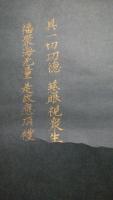 具一切功德 慈眼視眾生
福聚海无量 是故應頂禮